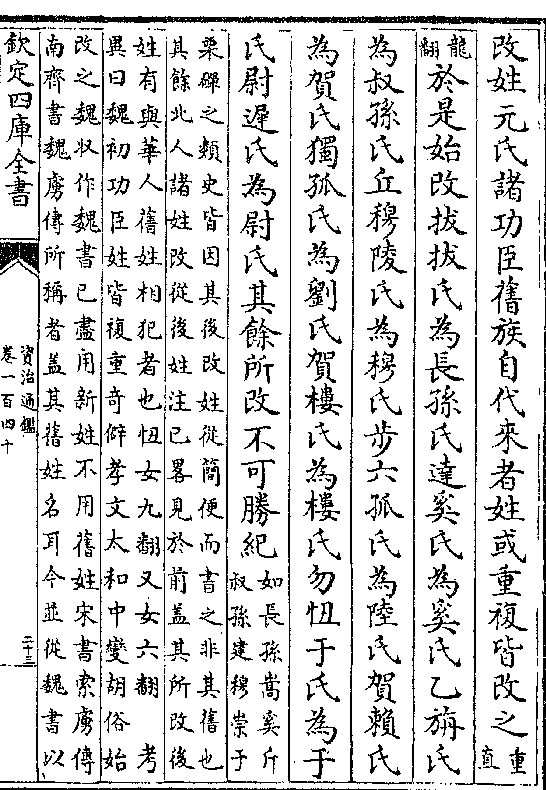 改姓元氏諸功臣舊族自代來者姓或重複皆改之
重
直
龍
翻
於是始改拔拔氏為長孫氏達奚氏為奚氏乙旃氏
為叔孫氏丘穆陵氏為穆氏步六孤氏為陸氏賀賴氏
為賀氏獨孤氏為劉氏賀樓氏為樓氏勿忸于氏為于
氏尉遲氏為尉氏其餘所改不可勝紀
如長孫嵩奚斤
叔孫建穆崇于
栗磾之類史皆因其後改姓從簡便而書之非其舊也
其餘北人諸姓改從後姓注已畧見於前盖其所改後
姓有與華人舊姓相犯者也忸女九翻又女六翻 考
異曰魏初功臣姓皆複重奇僻孝文太和中變胡俗始
改之魏収作魏書已盡用新姓不用舊姓宋書索虜傳
南齊書魏虜傳所稱者盖其舊姓名耳今並從魏書以
欽定四庫全書
資治通鑑
卷一百四十
二十三